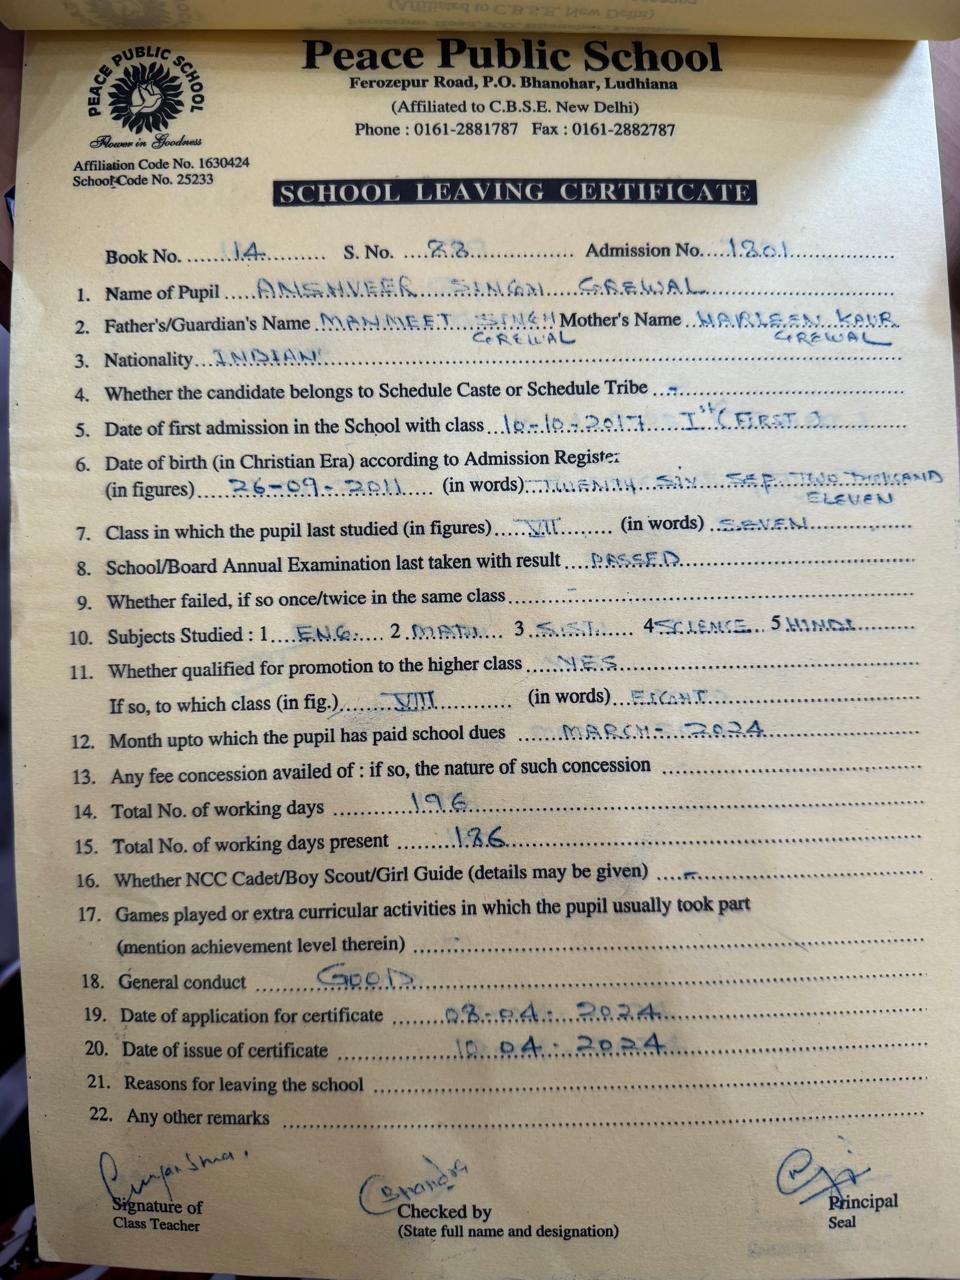 PEACE PUBLIC SCHOOL
Flower in Goodness
Affiliation Code No. 1630424
School Code No. 25233
Peace Public School
Ferozepur Road, P.O. Bhanohar, Ludhiana
(Affiliated to C.B.S.E. New Delhi)
Phone : 0161-2881787 Fax : 0161-2882787
SCHOOL LEAVING CERTIFICATE
Book No. 14 S. No. 88 Admission No. 1801
1. Name of Pupil ANSHVEER SINGH GREWAL
2. Father's/Guardian's Name MANMEET SINGH GREWAL Mother's Name HARLEEN KAUR GREWAL
3. Nationality INDIAN
4. Whether the candidate belongs to Schedule Caste or Schedule Tribe -
5. Date of first admission in the School with class 10-10-2017 Ist (FIRST)
6. Date of birth (in Christian Era) according to Admission Register
(in figures) 26-09-2011 (in words) TWENTY SIX SEP. TWO THOUSAND ELEVEN
7. Class in which the pupil last studied (in figures) VII (in words) SEVEN
8. School/Board Annual Examination last taken with result PASSED
9. Whether failed, if so once/twice in the same class -
10. Subjects Studied : 1 ENG. 2 MATH 3 S.ST. 4 SCIENCE 5 HINDI
11. Whether qualified for promotion to the higher class YES
If so, to which class (in fig.) VIII (in words) EIGHT
12. Month upto which the pupil has paid school dues MARCH - 2024
13. Any fee concession availed of : if so, the nature of such concession
14. Total No. of working days 196
15. Total No. of working days present 186
16. Whether NCC Cadet/Boy Scout/Girl Guide (details may be given) -
17. Games played or extra curricular activities in which the pupil usually took part
(mention achievement level therein)
18. General conduct GOOD
19. Date of application for certificate 08-04-2024
20. Date of issue of certificate 10.04.2024
21. Reasons for leaving the school
22. Any other remarks
Signature of
Class Teacher
Checked by
(State full name and designation)
Principal
Seal